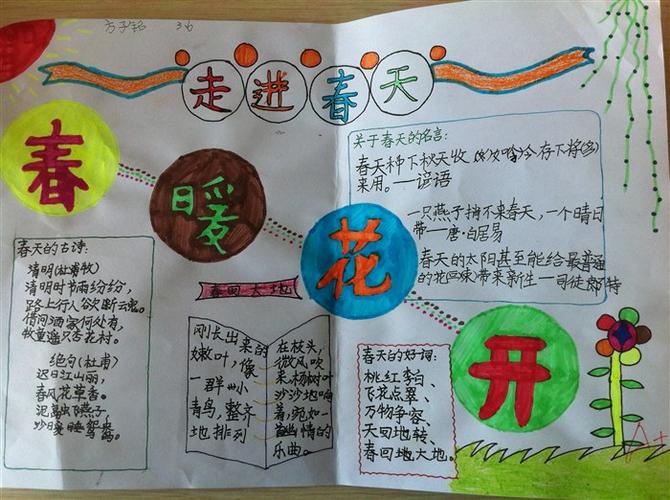 方子铭
走进春天
春
暖
花
开
关于春天的名言:
春天种下秋天收
存下将
来用。——谚语
一只燕子捎不来春天，一个晴日
带一唐·白居易
春天的太阳甚至能给最普通
的花
带来新生一司徒
特
春天的古诗:
清明(杜牧)
清明时节雨纷纷，
路上行人欲断云魂。
借问酒家何处有，
牧童遥只杏花村。
绝句(杜甫)
迟日江山丽，
春风花草香。
泥融飞燕子，
沙暖睡鸳鸯。
春回大地
刚长出来的
嫩叶，像
一群小
青鸟，整齐
地排列
在枝头，
微风吹
来，杨树叶
沙沙地响
着，宛如一
首幽情的
乐曲。
春天的好词:
桃红李白、
飞花点翠、
万物争容、
天回地转、
春回地大地。
A+